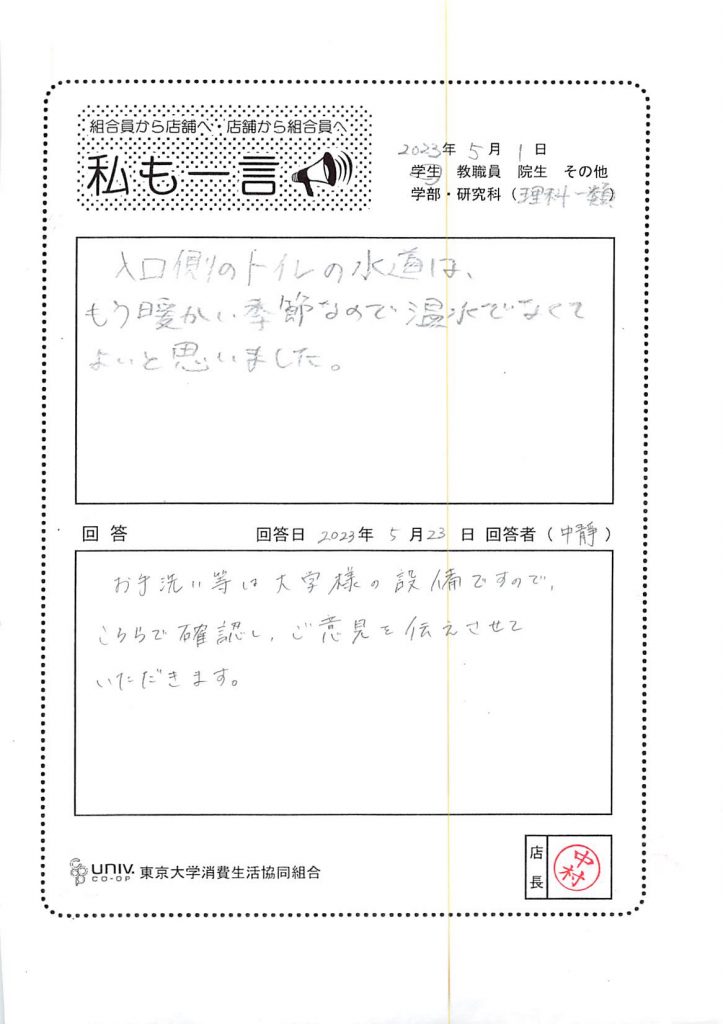 組合員から店舗へ・店舗から組合員へ
私も一言
2023年 5月 1日
学生 教職員 院生 その他
学部・研究科(理科一類)
入口側のトイレの水道は、
もう暖かい季節なので温水でなくて
よいと思いました。
回答 回答日 2023年 5月23日 回答者(中静)
お手洗い等は大学様の設備ですので、
こちらで確認し、ご意見を伝えさせて
いただきます。
UNIV. CO-OP 東京大学消費生活協同組合
店長
中村